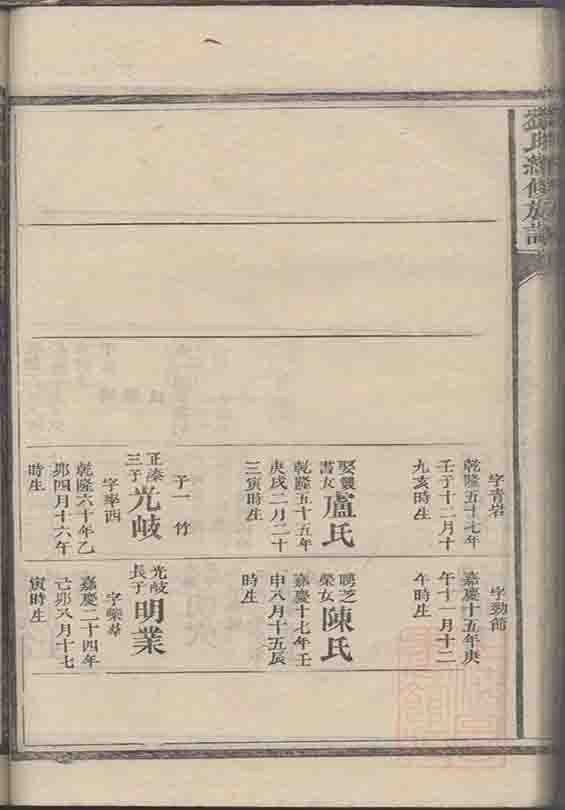 氏續修族譜
字青岩
乾隆五十七年
壬子十二月十
九亥時生
娶龔
書女
盧氏
乾隆五十五年
庚戌二月二十
三寅時生
子一 竹
正漆
三子
光岐
字率西
乾隆六十年乙
卯四月十六午
時生
字勁節
嘉慶十五年庚
午十一月十二
午時生
聘芝
榮女
陳氏
嘉慶十七年壬
申八月十五辰
時生
光岐
長子
明業
字紫尋
嘉慶二十四年
己卯八月十七
寅時生